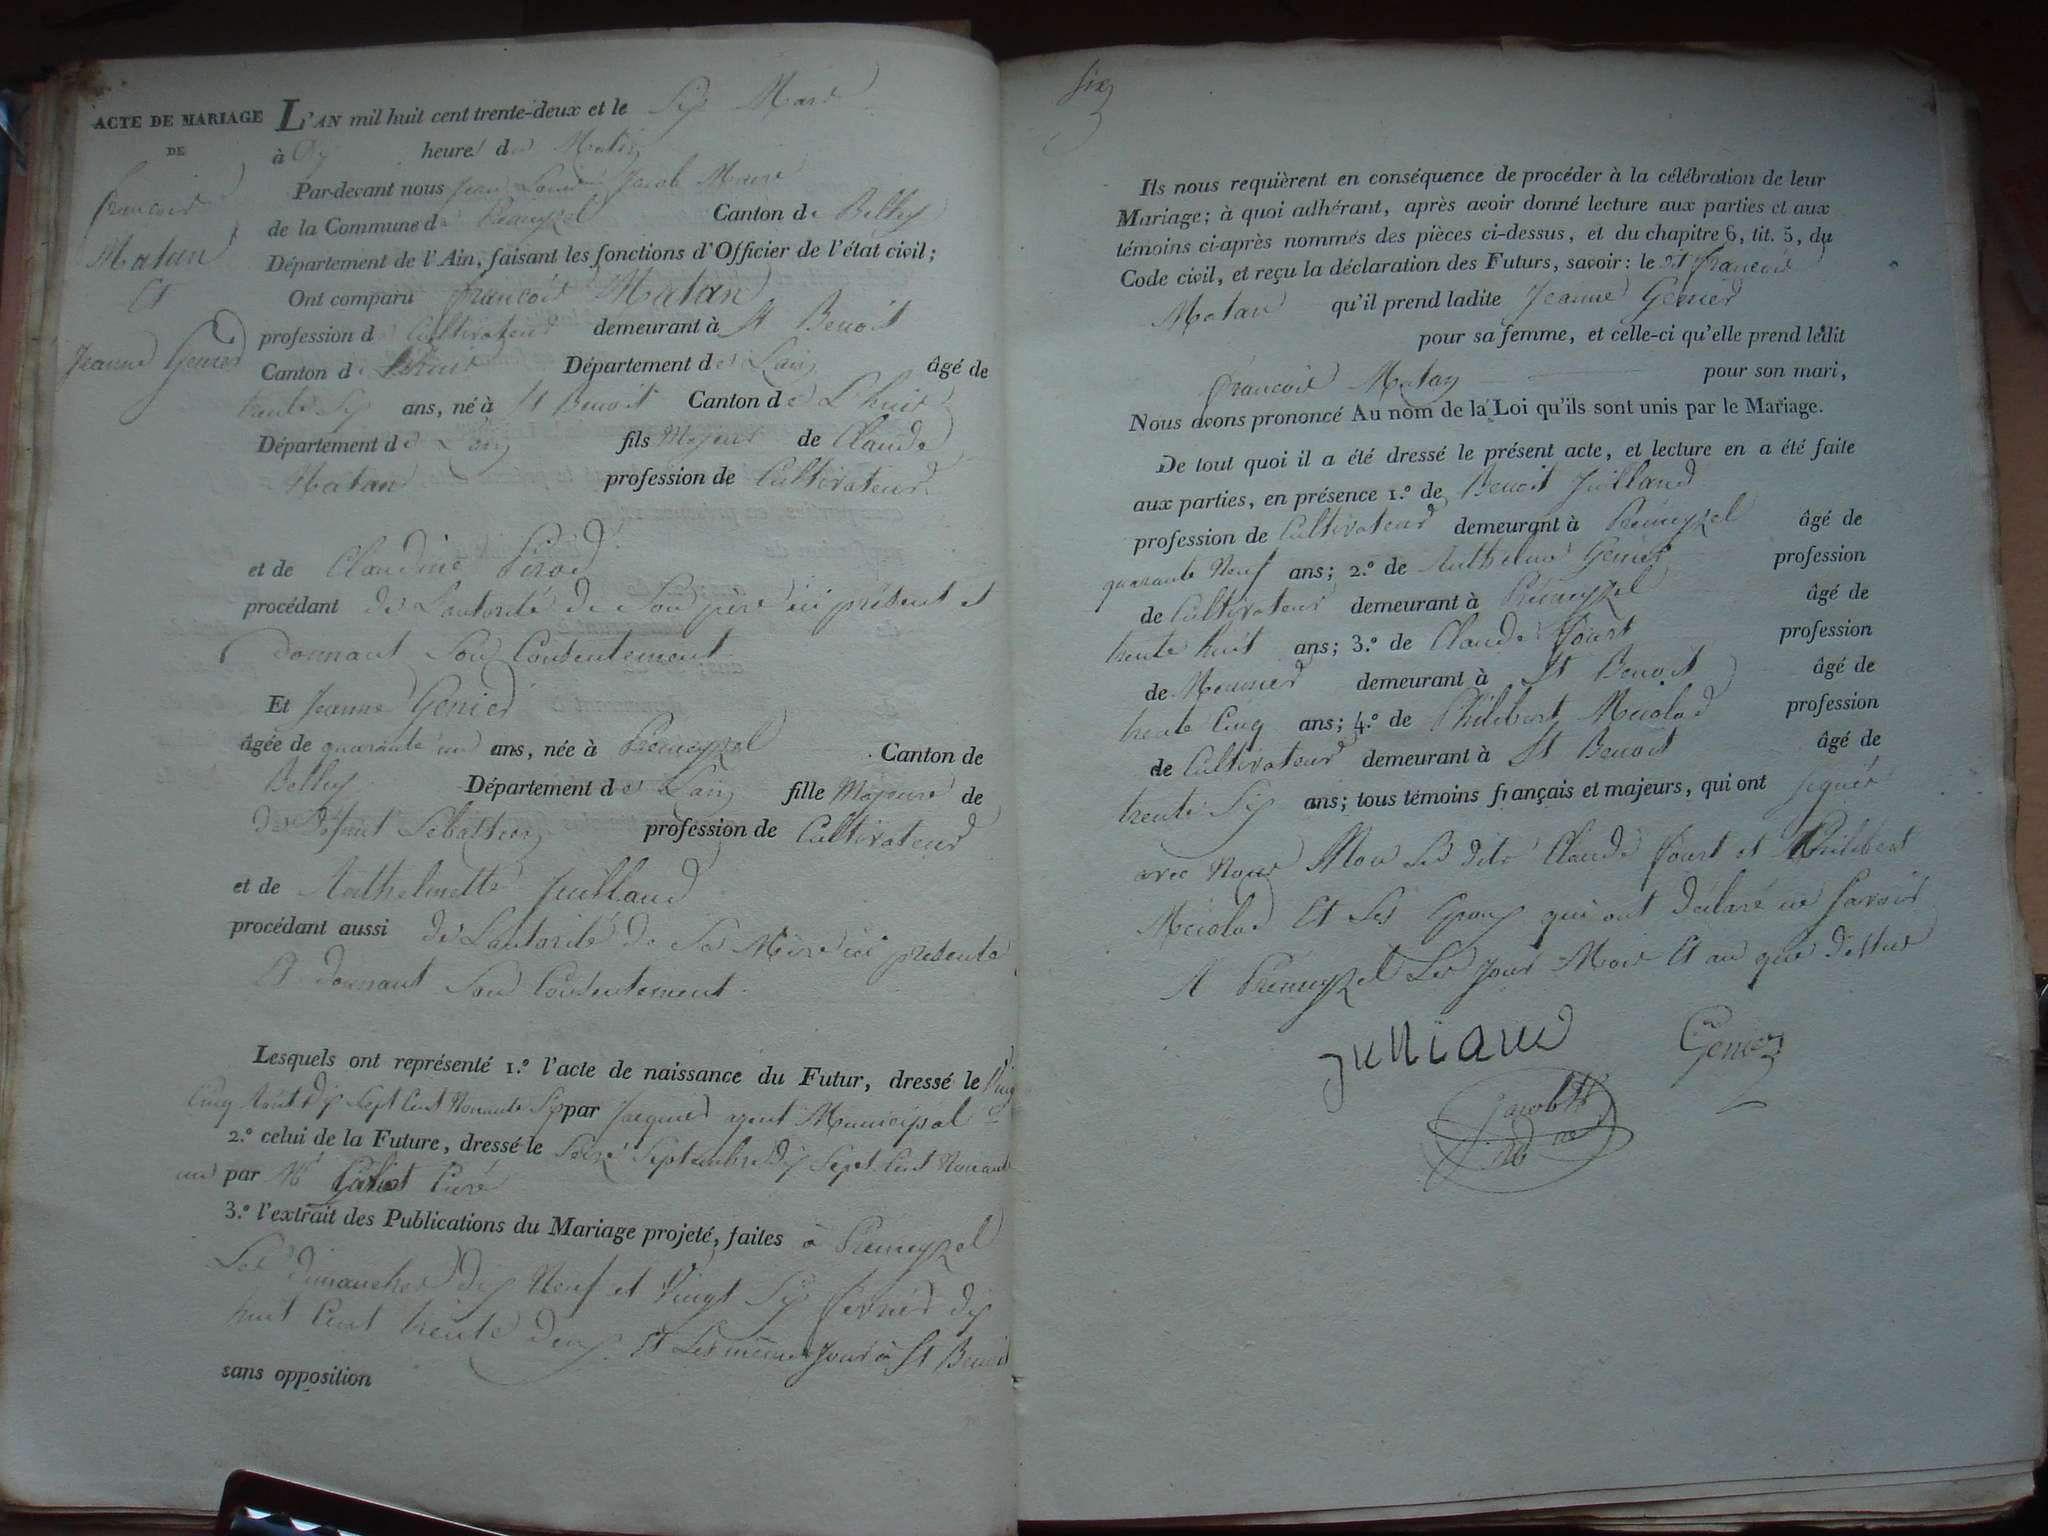 ACTE DE MARIAGE
DE
françois
Matan
Et
Jeanne Genier
L'AN mil huit cent trente-deux et le Six Mars
à Dix heures du Matin
Par-devant nous Jean Louis Jacob Maire
de la Commune de Prémeyzel Canton de Belley
Département de l'Ain, faisant les fonctions d'Officier de l'état civil;
Ont comparu françois Matan
profession de Cultivateur demeurant à St Benoit
Canton de Département de Lain âgé de
trente Six ans, né à St Benoit Canton de L'huis
Département de Lain fils Majeur de Claude
Matan profession de Cultivateur
et de Claudine Pirod
procédant de Lautorité de Son père ici présent et
donnant Son Consentement
Et Jeanne Genier
âgée de quarante un ans, née à Prémeyzel Canton de
Belley Département de Lain fille Majeure de
Défunt Sébastien profession de Cultivateur
et de Anthelmette Juilland
procédant aussi de Lautorité de Sa Mère ici présente
Et donnant Son Consentement
Lesquels ont représenté 1.º l'acte de naissance du Futur, dressé le Vingt
Cinq Août dix Sept Cent Nonante Six par Jacquier agent Municipal
2.º celui de la Future, dressé le Seize Septembre dix Sept Cent Nonante
un par Mr Curé
3.º l'extrait des Publications du Mariage projeté, faites à Prémeyzel
Les dimanches dix Neuf et Vingt Six février dix
huit Cent trente deux Et Les même Jour à St Benoit
sans opposition
six
Ils nous requièrent en conséquence de procéder à la célébration de leur
Mariage; à quoi adhérant, après avoir donné lecture aux parties et aux
témoins ci-après nommés des pièces ci-dessus, et du chapitre 6, tit. 5, du
Code civil, et reçu la déclaration des Futurs, savoir: le dt françois
Matan qu'il prend ladite Jeanne Genier
pour sa femme, et celle-ci qu'elle prend ledit
françois Matan pour son mari,
Nous avons prononcé Au nom de la Loi qu'ils sont unis par le Mariage.
De tout quoi il a été dressé le présent acte, et lecture en a été faite
aux parties, en présence 1.º de Benoit Juilland
profession de Cultivateur demeurant à Prémeyzel âgé de
quarante Neuf ans; 2.º de Anthelme Genier profession
de Cultivateur demeurant à Prémeyzel âgé de
trente huit ans; 3.º de Claude fourt profession
de Meunier demeurant à St Benoit âgé de
trente Cinq ans; 4.º de Philibert Mérolad profession
de Cultivateur demeurant à St Benoit âgé de
trente Six ans; tous témoins français et majeurs, qui ont signés
avec Nous Non Les dits Claude fourt et Philibert
Mérolad Et Les Epoux qui ont déclaré ne Savoir
A Prémeyzel Les Jour Mois Et an que dessus
Juilland Genier
Jacob